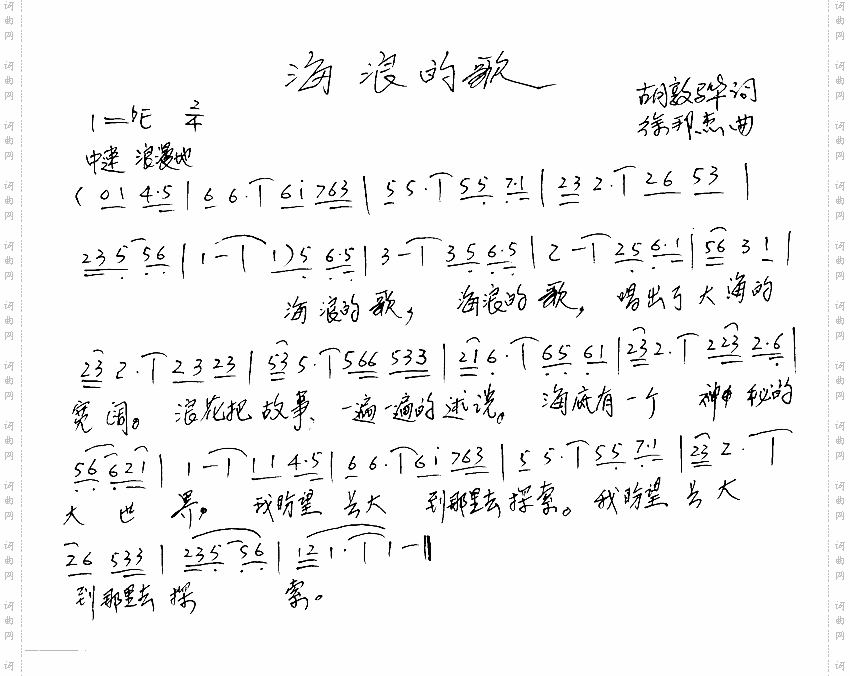 海浪的歌
胡敦骅词
1=bE 2/4
徐邦杰曲
中速 浪漫地
( 0 1 4·5 | 6 6· 6 i 7 6 3 | 5 5· 5 5 7·1 | 2 3 2· 2 6 5 3 |
2 3 5 5 6 | 1 - 1 ) 5 6·5 | 3 - 3 5 6·5 | 2 - 2 5 6·1 | 5 6 3 1 |
海浪的歌, 海浪的歌, 唱出了大海的
2 3 2· 2 3 2 3 | 5 3 5· 5 6 6 5 3 3 | 2 1 6· 6 5 6 1 | 2 3 2· 2 2 3 2·6 |
宽阔。 浪花把故事、一遍一遍的述说。 海底有一个 神秘的
5 6 6 2 1 | 1 - 1 1 4·5 | 6 6· 6 i 7 6 3 | 5 5· 5 5 7·1 | 2 3 2·
大世界, 我盼望长大 到那里去探索。我盼望长大
2 6 5 3 3 | 2 3 5 5 6 | 1 2 1· 1 - ‖
到那里去探 索。
词曲网